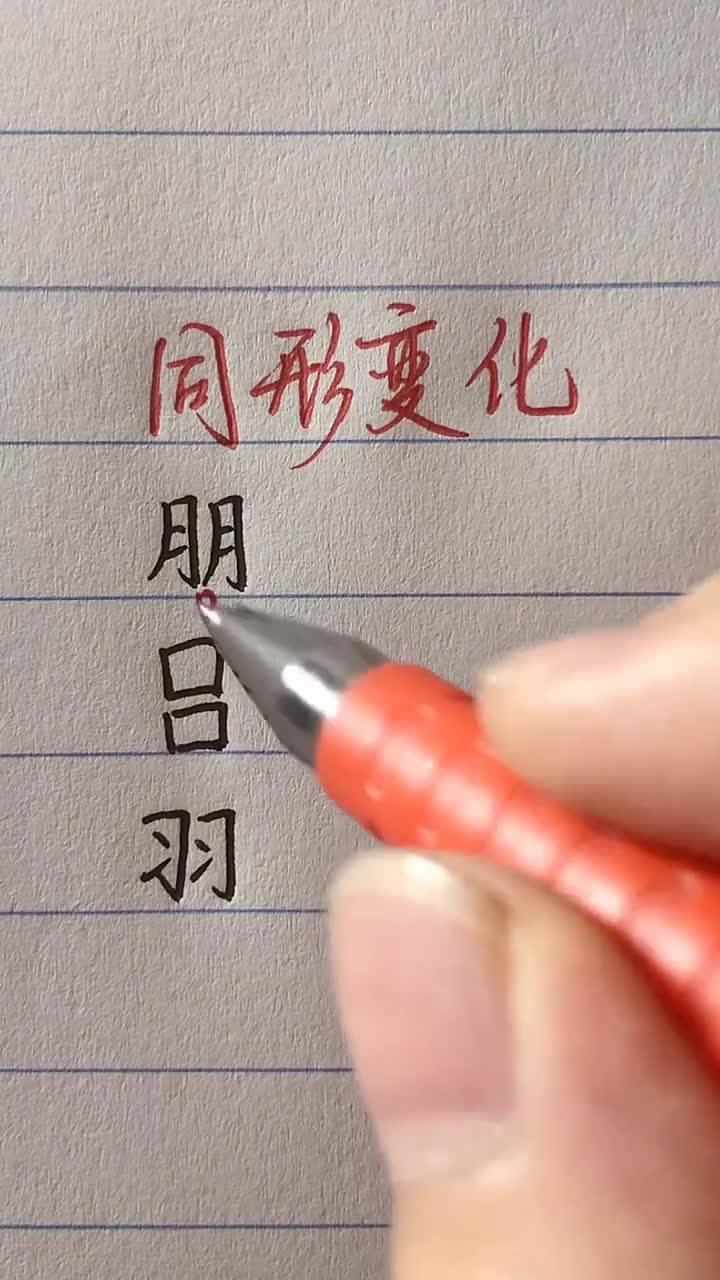 同形变化
朋
吕
羽